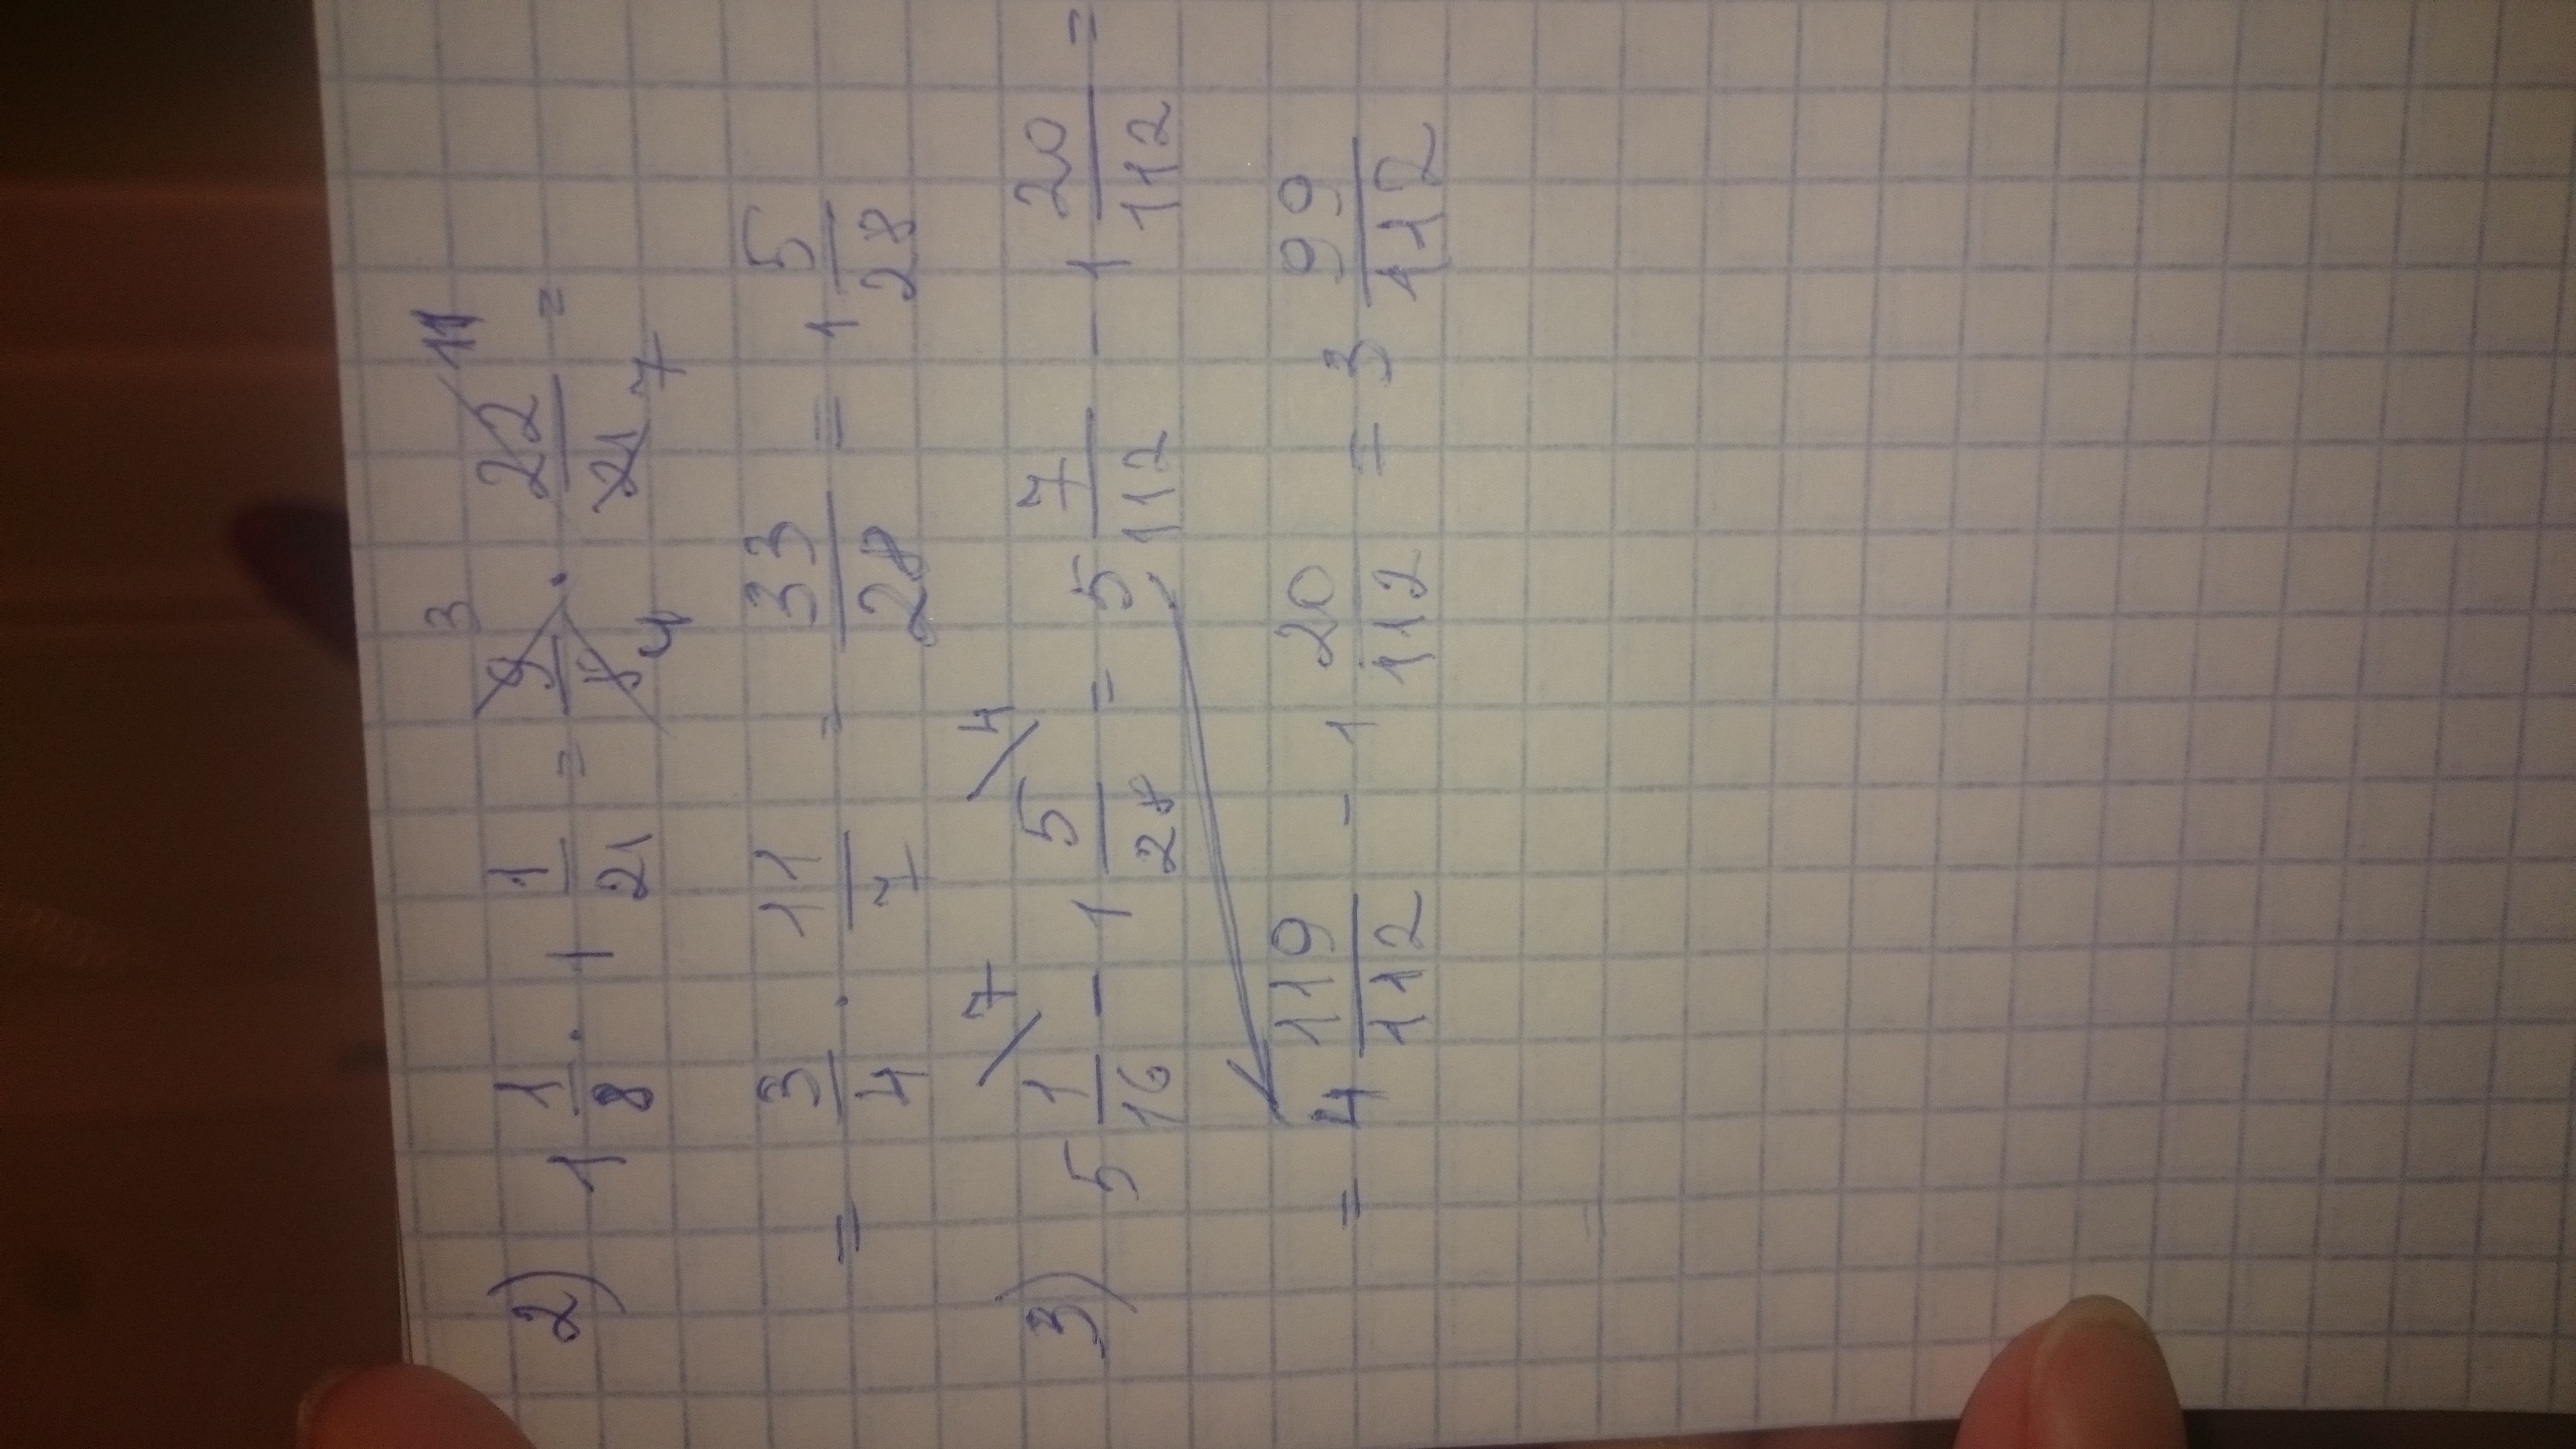 2) 1 1/8 · 1 1/21 = 9/8 3 4 · 22/21 11 7 =
= 3/4 · 11/7 = 33/28 = 1 5/28
3) 5 1/16 \7 - 1 5/28 \4 = 5 7/112 - 1 20/112 =
= 4 119/112 - 1 20/112 = 3 99/112
=